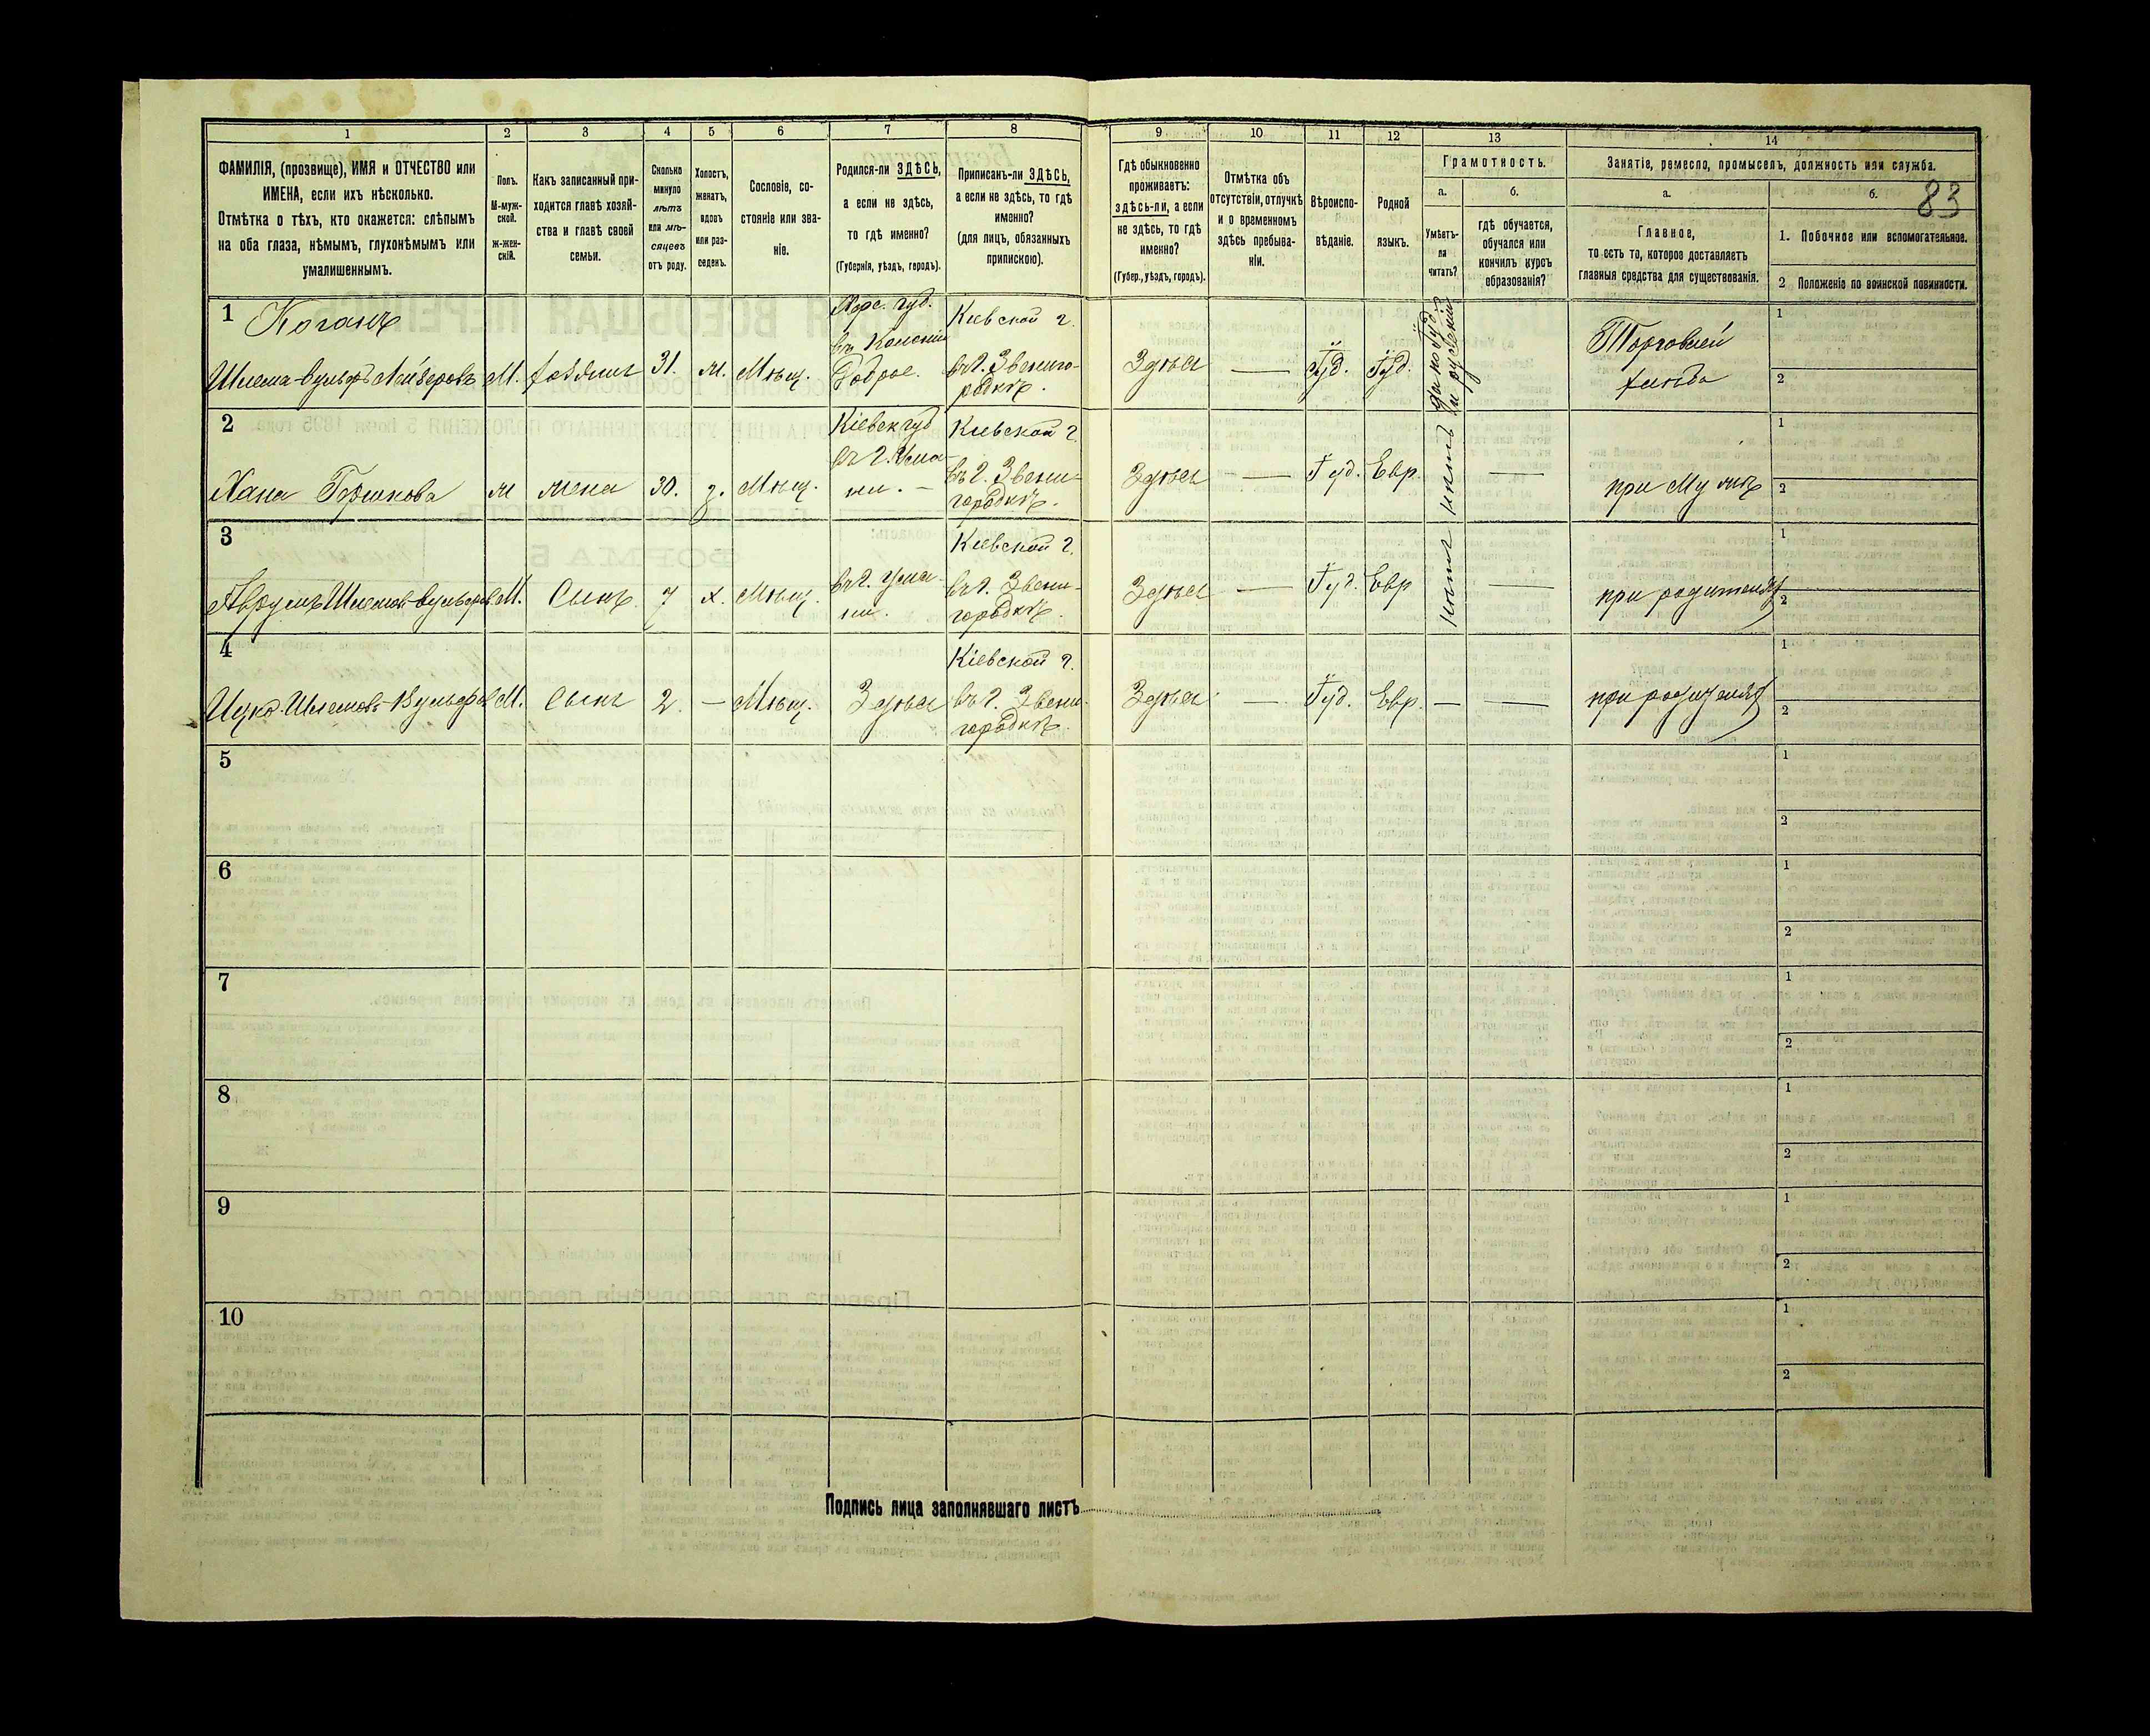 1 2 3 4 5 6 7 8 9 10 11 12 13 14
ФАМИЛІЯ, (прозвище), ИМЯ и ОТЧЕСТВО или
ИМЕНА, если ихъ нѣсколько.
Отмѣтка о тѣхъ, кто окажется: слѣпымъ
на оба глаза, нѣмымъ, глухонѣмымъ или
умалишеннымъ.
Полъ.
М-муж-
ской.
Ж-жен-
скій.
Какъ записанный при-
ходится главѣ хозяй-
ства и главѣ своей
семьи.
Сколько
минуло
лѣтъ
или мѣ-
сяцевъ
отъ роду.
Холостъ,
женатъ,
вдовъ
или раз-
веденъ.
Сословіе, со-
стояніе или зва-
ніе.
Родился-ли ЗДѢСЬ,
а если не здѣсь,
то гдѣ именно?
(Губернія, уѣздъ, городъ).
Приписанъ-ли ЗДѢСЬ,
а если не здѣсь, то гдѣ
именно?
(для лицъ, обязанныхъ
припискою).
Гдѣ обыкновенно
проживаетъ:
здѣсь-ли, а если
не здѣсь, то гдѣ
именно?
(Губер., уѣздъ, городъ).
Отмѣтка объ
отсутствіи, отлучкѣ
и о временномъ
здѣсь пребыва-
ніи.
Вѣроиспо-
вѣданіе.
Родной
языкъ.
Грамотность.
а.
Умѣетъ-
ли
читать?
б.
гдѣ обучается,
обучался или
кончилъ курсъ
образованія?
Занятіе, ремесло, промыселъ, должность или служба.
а.
Главное,
то есть то, которое доставляетъ
главныя средства для существованія.
б.
83
1. Побочное или вспомогательное.
2 Положеніе по воинской повинности.
1 Коганъ
Шлема-Вульфъ Лейзеровъ М. хозяинъ 31. Мѣщ.
Херс. губ.
въ Колоніи
Доброе.
Кіевской г.
въ г. Звениго-
родкѣ.
Здѣсь — Іуд. Іуд.
да по Іуд.
и русскій
Торговлей
1
2
2
Хана жена 30. з. Мѣщ.
Кіевск губ
въ г. Ума-
ни. —
Кіевской г.
въ г. Звени-
городкѣ.
Здѣсь — Іуд. Евр. нѣтъ —
при мужѣ
1
2
3
Аврумъ Шлемов-Вульфов. М. Сынъ 7 х. Мѣщ.
въ г. Ума-
ни.
Кіевской г.
въ г. Звени-
городкѣ.
Здѣсь — Іуд. Евр нѣтъ —
при родителях
1
2
4
Ицко Шлемовъ-Вульфов М. Сынъ 2. — Мѣщ. Здѣсь
Кіевской г.
въ г. Звени-
городкѣ.
Здѣсь — Іуд. Евр. — —
при родителях
1
2
5
1
2
6
1
2
7
1
2
8
1
2
9
1
2
10
1
2
Подпись лица заполнявшаго листъ